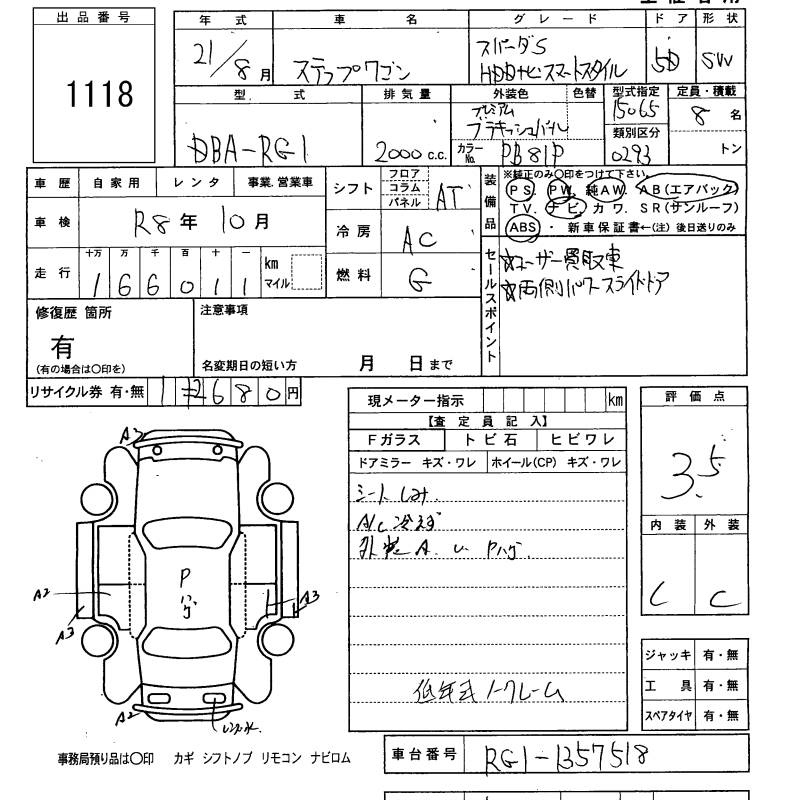 出品番号
1118
年式 車名 グレード ドア 形状
21/8月 ステップワゴン スパーダS 5D SW
HDDナビスマートスタイル
型式 排気量 外装色 色替 型式指定 定員・積載
DBA-RG1 2000c.c. プレミアム 15065 8名
カラーNo. PB81P 類別区分 0293 トン
車歴 自家用 レンタ 事業.営業車
車検 R8年10月
走行 十万 万 千 百 十 一 km マイル
166011
シフト フロア コラム パネル AT
冷房 AC
燃料 G
装備品 ※純正のみ〇印をつけて下さい。
PS. PW. 純AW. AB(エアバック)
TV. ナビ. カワ. SR(サンルーフ)
ABS ・ 新車保証書←(注) 後日送りのみ
セールスポイント
☆ユーザー買取車
☆両側パワースライドドア
修復歴 箇所
有
(有の場合は〇印を)
注意事項
名変期日の短い方 月 日まで
リサイクル券 有・無 12680円
現メーター指示 km
【査定員記入】
Fガラス トビ石 ヒビワレ
ドアミラー キズ・ワレ ホイール(CP) キズ・ワレ
シートしみ
A/C冷えず
外装A. U. Pハゲ.
低年式 ノークレーム
評価点
3.5
内装 外装
C C
ジャッキ 有・無
工具 有・無
スペアタイヤ 有・無
A3
P
ハゲ
A2
A3
A3
A2
レンズ水
事務局預り品は〇印 カギ シフトノブ リモコン ナビロム
車台番号 RG1-1357518